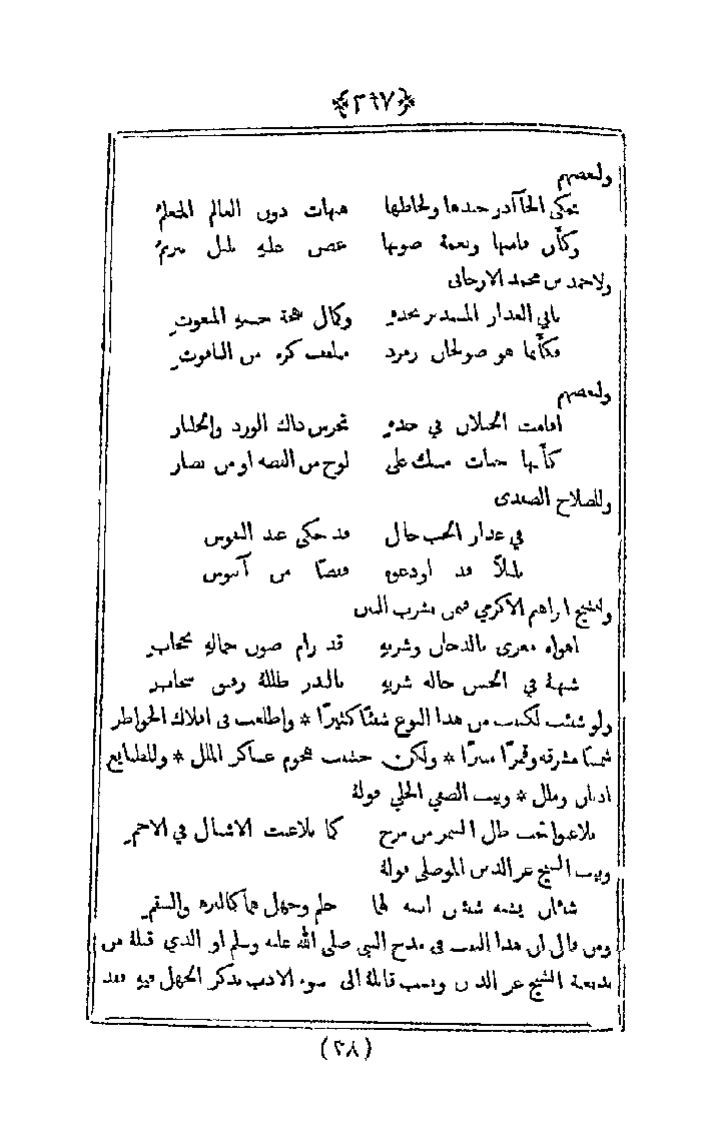 ﴿٢٦٧﴾
ولبعضهم
تحكي الجآذر جيدها ولحاظها هيهات دون العالم المتعلمُ
وكأن قامتها ونغمة صوتها غصن عليه بلبل مترنمُ
ولاحمد بن محمد الارجاني
بابي العذار المستدير بخدهِ وكمال بهجة حسنهِ المنعوتِ
فكأنما هو صولجان زمرد متلقف كرة من الياقوتِ
ولبعضهم
اقامت الخيلان في خدهِ تحرس ذاك الورد والجلنار
كأنها حبات مسك على لوح من الفضة او من نضار
وللصلاح الصفدي
في عذار الحب خال قد حكى عند النفوس
بلبلاً قد اودعوه قفصًا من آبنوس
وللشيخ ابراهيم الاكرمي فيمن يشرب التتن
اهواه مغرى بالدخان وشربهِ قد رام صون جمالهِ بحجابِ
شبهتهُ في الحسن حالة شربهِ بالبدر ظللهُ رقيق سحابِ
ولو شئت لكتبت من هذا النوع شيئًا كثيرًا * واطلعت في افلاك الخواطر
شمسًا مشرقة وقمرًا منيرًا * ولكن خشيت هجوم عساكر الملل * وللطبايع
ادبار وملل * وبيت الصفي الحلي قولهُ
تلاعبوا تحت ظل السمر من مرح كما تلاعبت الاشبال في الاجمِ
وبيت الشيخ عز الدين الموصلي قولهُ
شيئان يشبه شيئين انتبه لهما حلم وجهل هما كالبرء والسقمِ
ومن قال ان هذا البيت في مدح النبي صلى الله عليه وسلم او الذي قبلهُ من
بديعية الشيخ عز الدين ونسب قائلهُ الى سوء الادب بذكر الجهل فيهِ فقد
(٢٨)